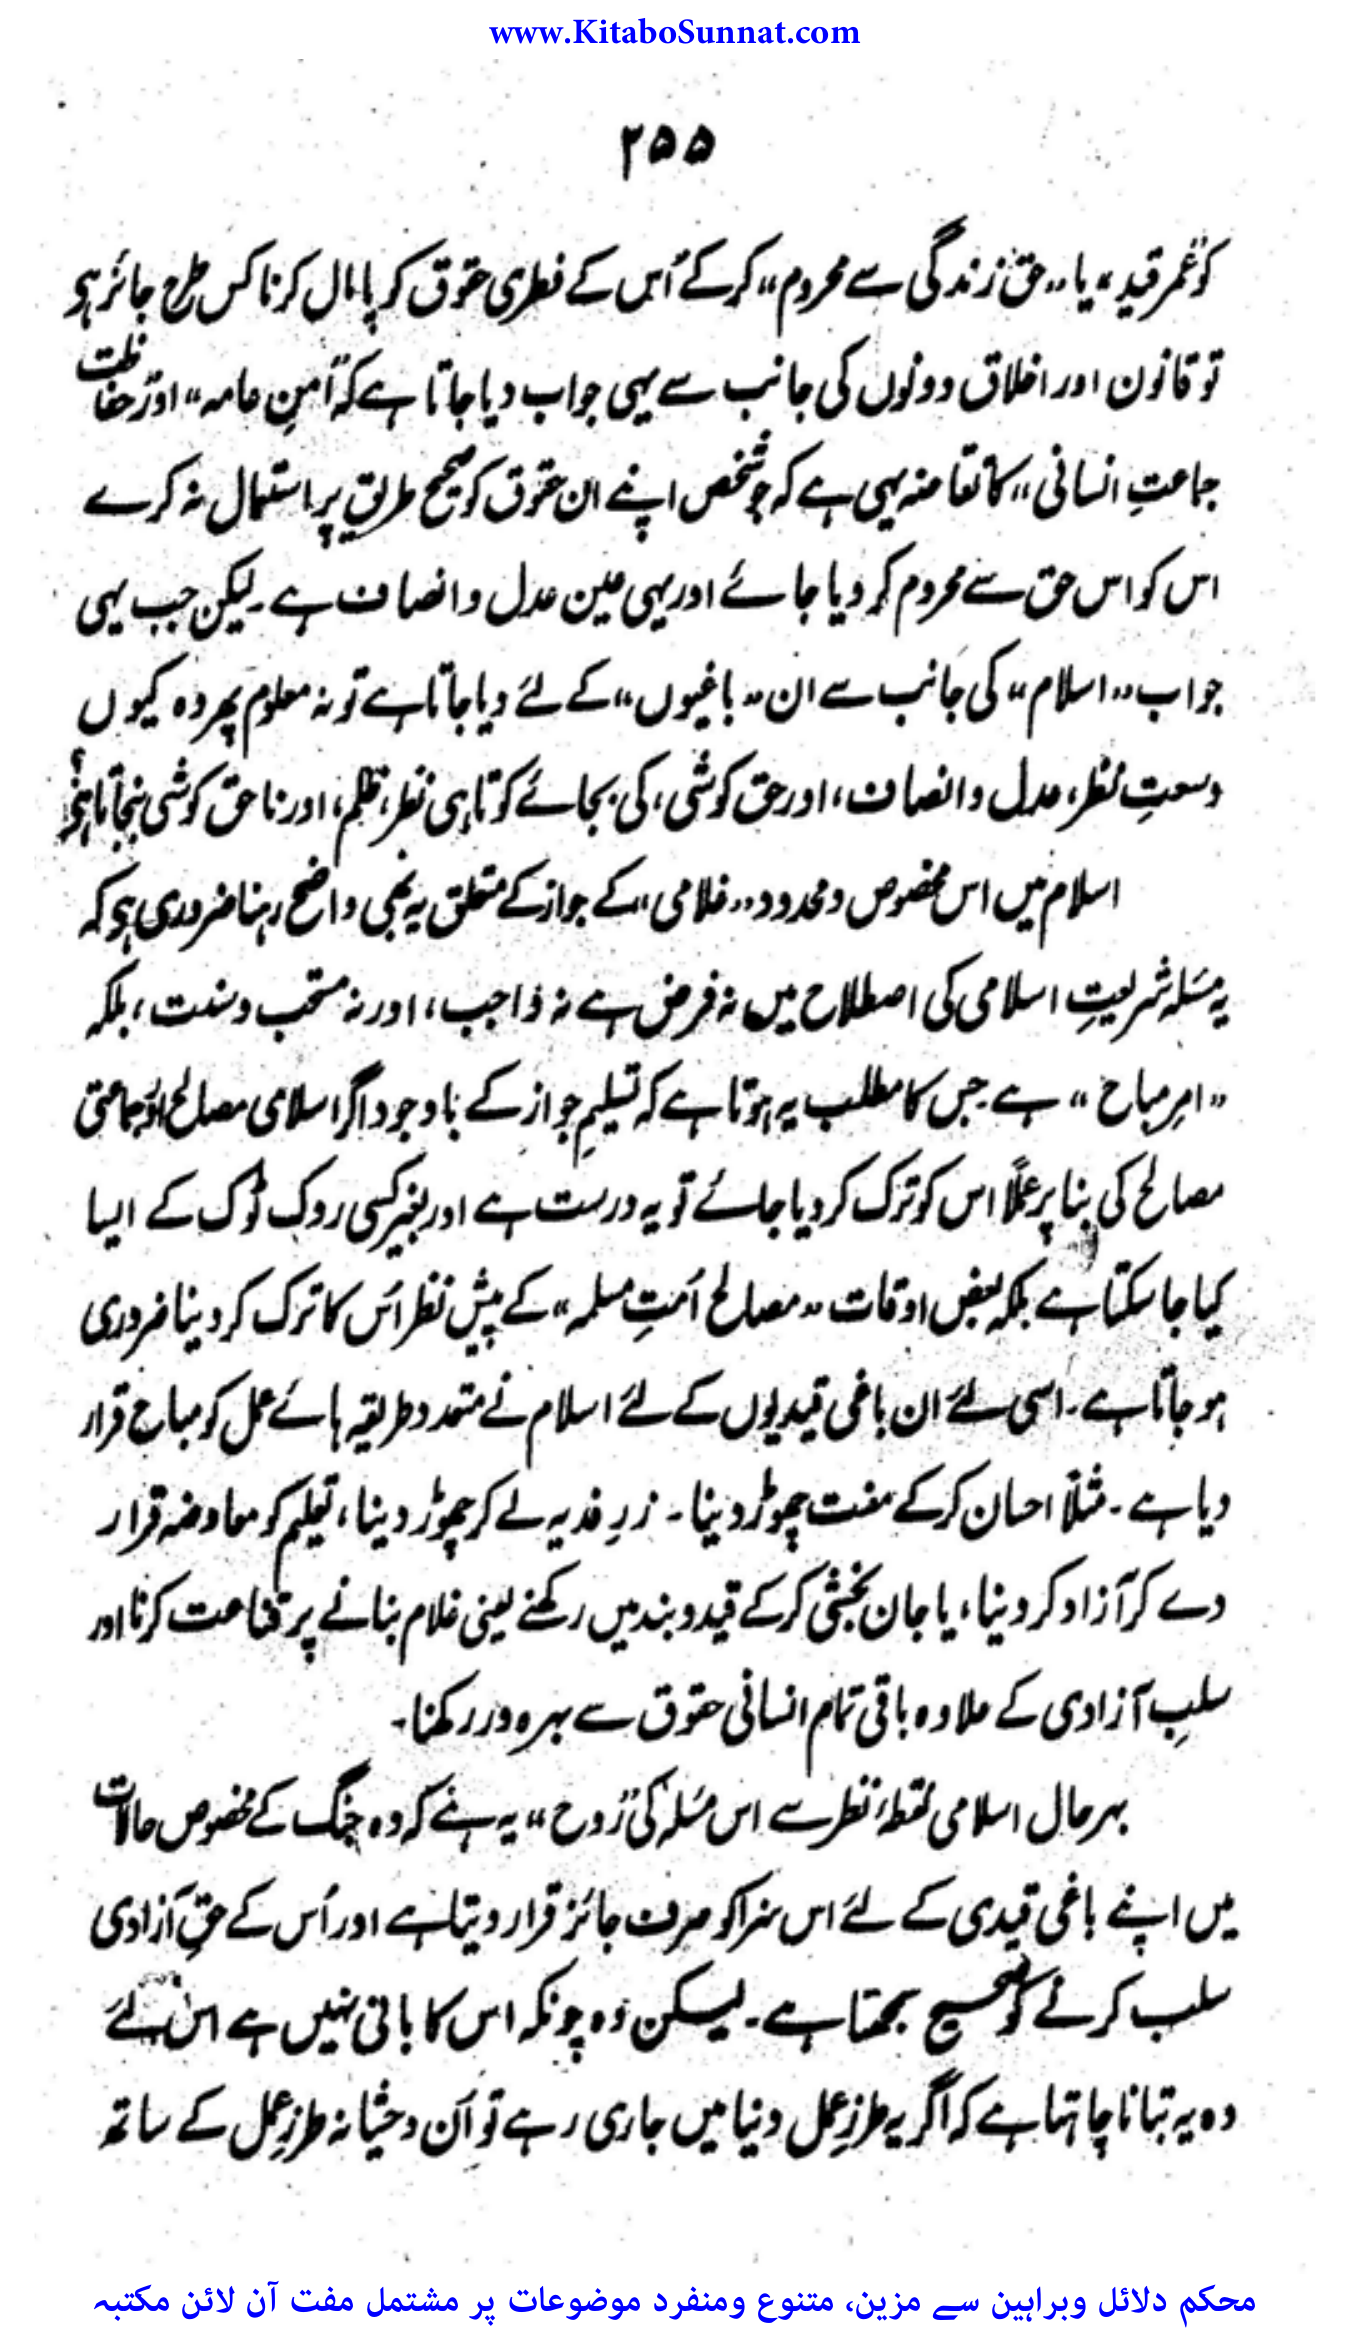 www.KitaboSunnat.com
۲۵۵
کو "عمر قید" یا "حق زندگی سے محروم" کرکے اُس کے فطری حقوق کو پامال کرنا کس طرح جائز ہو
تو قانون اور اخلاق دونوں کی جانب سے یہی جواب دیا جاتا ہے کہ "امنِ عامہ" اور "حفاظت
جماعتِ انسانی" کا تقاضہ یہی ہے کہ جو شخص اپنے ان حقوق کو صحیح طریق پر استعمال نہ کرے
اس کو اس حق سے محروم کر دیا جائے اور یہی عین عدل و انصاف ہے۔ لیکن جب یہی
جواب "اسلام" کی جانب سے ان "باغیوں" کے لئے دیا جاتا ہے تو نہ معلوم پھر وہ کیوں
وسعتِ نظر، عدل و انصاف، اور حق کوشی، کی بجائے کوتاہی نظر، ظلم، اور ناحق کوشی بنجاتا ہے؟
اسلام میں اس مخصوص و محدود "غلامی" کے جواز کے متعلق یہ بھی واضح رہنا ضروری ہے کہ
یہ مسٔلہ شریعتِ اسلامی کی اصطلاح میں نہ فرض ہے نہ واجب، اور نہ مستحب و سنت، بلکہ
"امرِ مباح" ہے۔ جس کا مطلب یہ ہوتا ہے کہ تسلیمِ جواز کے باوجود اگر اسلامی مصالح اور جماعتی
مصالح کی بنا پر عملاً اس کو ترک کر دیا جائے تو یہ درست ہے اور بغیر کسی روک ٹوک کے ایسا
کیا جا سکتا ہے بلکہ بعض اوقات "مصالح اُمتِ مسلمہ" کے پیش نظر اس کا ترک کر دینا ضروری
ہو جاتا ہے۔ اسی لئے ان باغی قیدیوں کے لئے اسلام نے متعدد طریقہ ہائے عمل کو مباح قرار
دیا ہے۔ مثلاً احسان کرکے مفت چھوڑ دینا۔ زرِ فدیہ لے کر چھوڑ دینا، تعلیم کو معاوضہ قرار
دے کر آزاد کر دینا، یا جان بخشی کرکے قید و بند میں رکھنے یعنی غلام بنانے پر قناعت کرنا اور
سلبِ آزادی کے علاوہ باقی تمام انسانی حقوق سے بہرہ ور رکھنا۔
بہر حال اسلامی نقطۂ نظر سے اس مسٔلہ کی "روح" یہ ہے کہ وہ جنگ کے مخصوص حالات
میں اپنے باغی قیدی کے لئے اس سزا کو صرف جائز قرار دیتا ہے اور اُس کے حقِ آزادی
سلب کرنے کو صحیح سمجھتا ہے۔ لیکن وہ چونکہ اس کا بانی نہیں ہے اس لئے
وہ یہ بتانا چاہتا ہے کہ اگر یہ طرزِ عمل دنیا میں جاری رہے تو اُن وحشیانہ طرزِ عمل کے ساتھ
محکم دلائل وبراہین سے مزین، متنوع ومنفرد موضوعات پر مشتمل مفت آن لائن مکتبہ